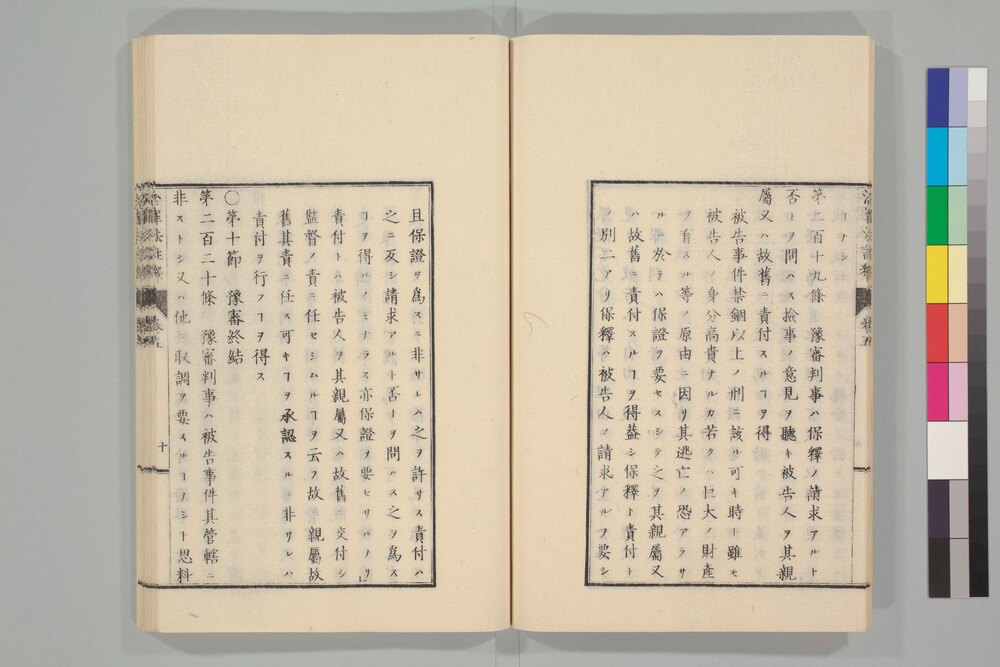 ヿナシ
第二百十九條 豫審判事ハ保釋ノ請求アルト
否トヲ問ハス撿事ノ意見ヲ聽キ被告人ヲ其親
屬又ハ故舊ニ責付スルヿヲ得
被告事件禁錮以上ノ刑ニ該ル可キ時ト雖モ
被告人ノ身分高貴ナルカ若クハ巨大ノ財產
ヲ有スル等ノ原由ニ因リ其逃亡ノ恐アラサ
ルニ於テハ保證ヲ要セスシテ之ヲ其親屬又
ハ故舊ニ責付スルヿヲ得葢シ保釋ト責付ト
ハ別ニアリ保釋ハ被告人ノ請求アルヲ要シ
且保證ヲ爲スニ非サレハ之ヲ許サス責付ハ
之ニ反シ請求アルト否トヲ問ハス之ヲ爲ス
ヿヲ得ルノミナラス亦保證ヲ要セサルノリ
責付トハ被告人ヲ其親屬又ハ故舊ニ交付シ
監督ノ責ニ任セシムルヿヲ云フ故ニ親屬故
舊其責ニ任ス可キヿヲ承認スルニ非サレハ
責付ヲ行フヿヲ得ス
〇第十節 豫審終結
第二百二十條 豫審判事ハ被告事件其管轄ニ
非ストシ又ハ他ニ取調ヲ要スルヿナシト思料
十